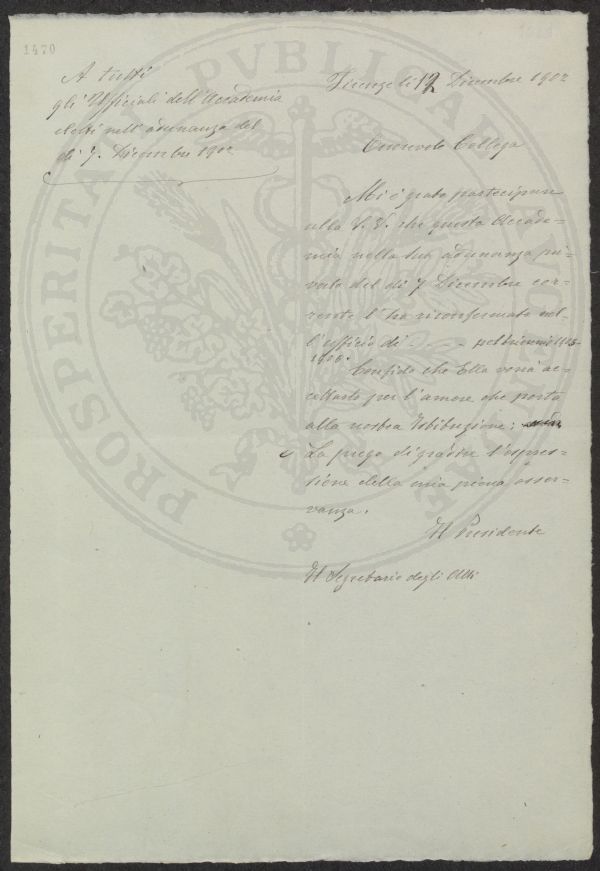 1470
A tutti
gli Ufficiali dell'Accademia
eletti nell'adunanza del
dì 7. Dicembre 1902
Firenze li 12 Dicembre 1902
Onorevole Collega
Mi è grato partecipare
alla S. V. che questa Accade-
mia nella sua adunanza pri-
vata del dì 7 Dicembre cor-
rente l'ha riconfermato nel-
l'ufficio di - - - - pel biennio 1903-
1904.
Confido che Ella vorrà ac-
cettarlo per l'amore che porta
alla nostra Istituzione:
e La prego di gradire l'espres-
sione della mia piena osser-
vanza.
Il Presidente
Il Segretario degli Atti
PROSPERITATI PVBLICAE